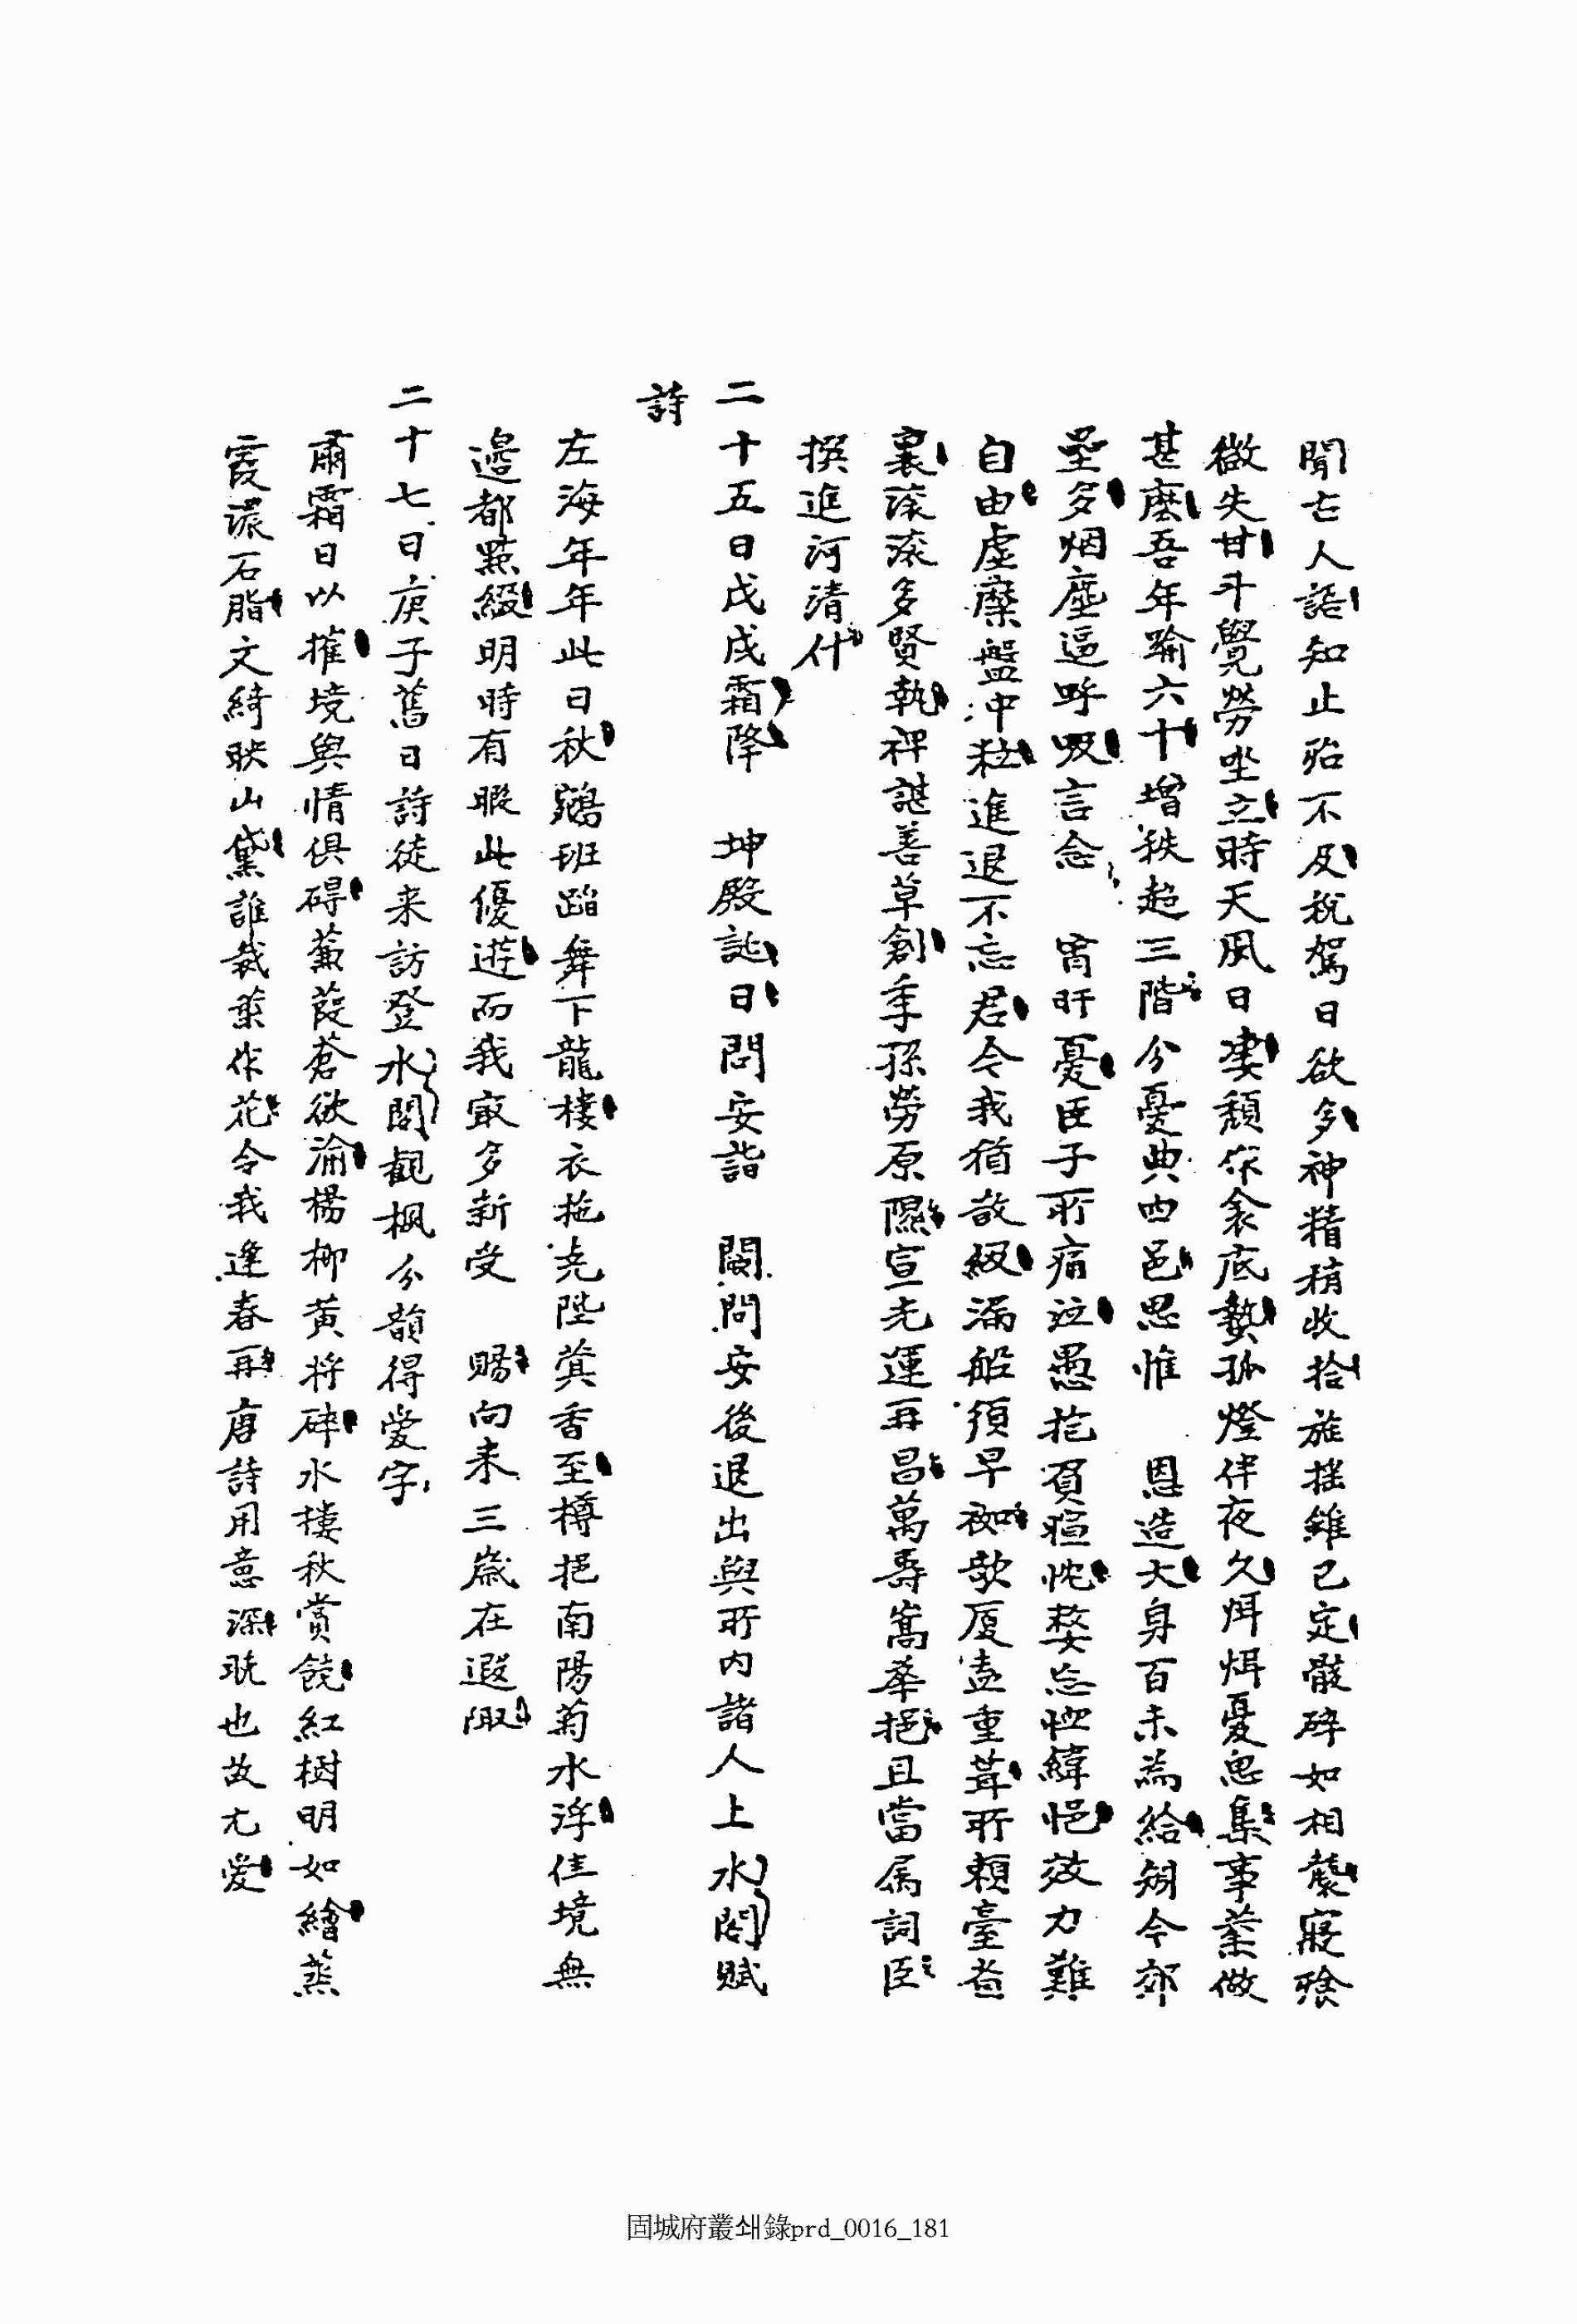 聞古人語知止殆不及稅駕日欲多神精稍收拾旌搖雖已定骸碎如相襲寢飱
微失甘斗覺勞坐立時天風日凄頹作衾底蟄孤燈伴夜久炯炯憂思集事業做
甚麽吾年踰六十增秩超三階分憂典四邑思惟 恩造大身百未爲給矧今郊
壘多烟塵逼呼吸言念 宵旰憂臣子所痛泣愚抱負暄忱婺忘恤緯悒效力難
自由虛縻盤冲粒進退不忘君今我猶敢級漏船須早袽欹厦盍重葺所賴臺省
裏滚滚多賢執裨諶善草創季孫勞原隰宣光運再昌萬壽嵩華挹且當屬詞臣
撰進河淸什
二十五日戊戌霜降 坤殿誕日問安詣 闕問安後退出與所內諸人上水閣賦
詩
左海年年此日秋鵷班蹈舞下龍樓衣拖堯陛蓂香至樽挹南陽菊水浮佳境無
邊都點綴明時有暇此優遊而我㝡多新受 賜向來三歲在遐陬
二十七日庚子舊日詩徒来訪登水閣觀楓分韻得愛字
肅霜日以摧境與情俱碍蒹葭蒼欲淪楊柳黃將碎水樓秋賞饒紅樹明如繪蒸
霞濃石脂文綺映山黛誰裁葉作花令我逢春再唐詩用意深晩也故尤愛
固城府叢쇄錄prd_0016_181